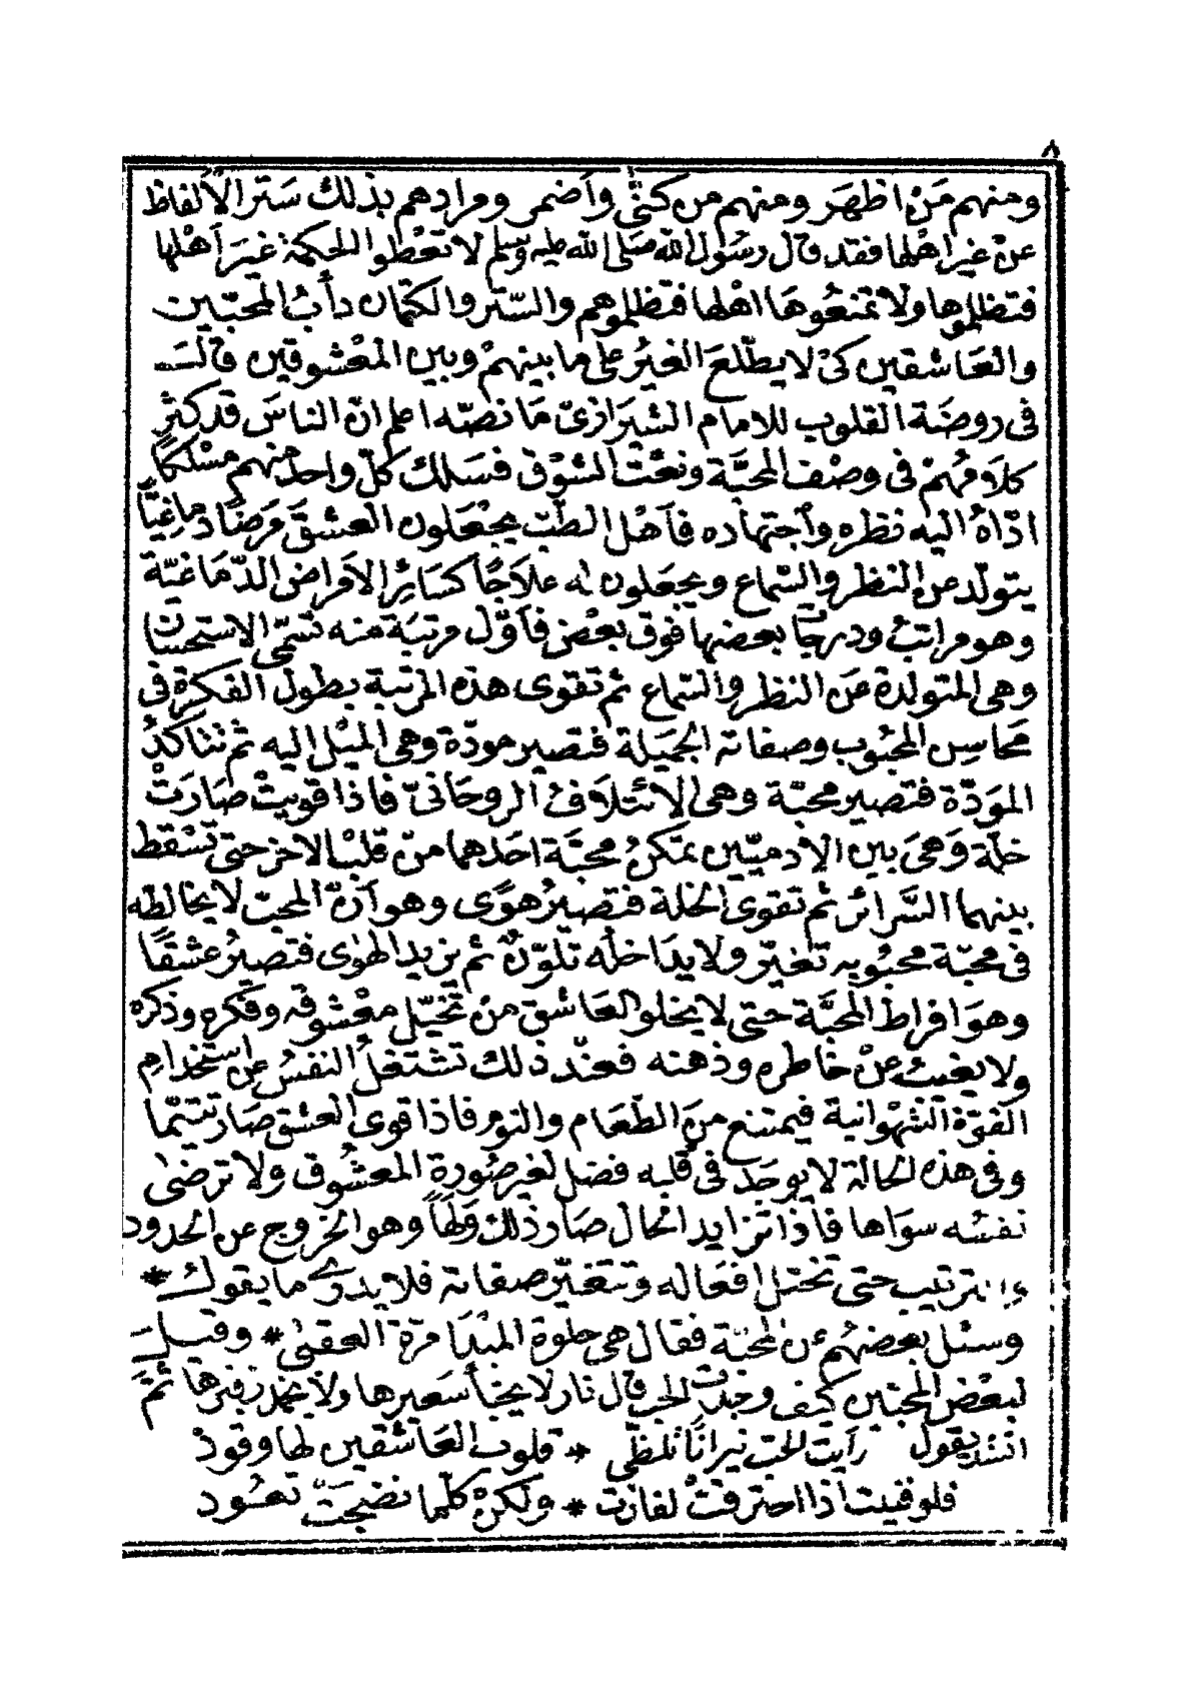 ٨
ومنهم مَنْ اظهَر ومنهم من كنّى وأضمر ومرادهم بذلك سَتر الألفاظ
عن غير اهْلها فقد قال رسُول الله صَلى الله عليه وسلم لا تعْطوا الحكمة غيرَ أهْلها
فتظلموها ولا تمنعُوهَا اهْلها فتظلموهم والسّتر والكتمان دأبُ المحبّين
والعَاشقين كىْ لا يطّلعَ الغيْرُ على ما بينهمْ وبين المعْشوقين قالـَ
فى روضَة القلوب للامام الشيرَازىّ مَا نصّه اعلم انّ الناسَ قد كثر
كلاَمُهمْ فى وصْف المحبَّة ونعْت الشوْق فسَلك كلّ واحد منهم مسْلكًا
ادّاهُ اليه نظره واجتهاده فأهْل الطّب يجْعَلون العشقَ مَرضًا دمَاغيًّا
يتولّد عن النظر والسّماع ويجعَلون له علاَجًا كسَائِر الامراض الدّمَاغيّة
وهو مراتبُ ودرجاتٌ بعضها فوق بعْض فأوّل مرتبَة منه تسَمّى الاستحسَان
وهى المتولدة عَن النظر والسّماع ثم تقوى هذه المرتبة بطول الفكرة فى
محَاسِن المحبُوب وصفاته الجميَلة فتصير مودّة وهى الميْل اليه ثم تتأكدُ
الموَدّة فتصير محبّة وهى الائتلاَفُ الروحَانىّ فاذا قويتْ صَارَتْ
خلّة وَهىَ بين الآدميّين تمكّنُ محبَّة احَدهما منْ قلبْ الآخر حتى تسْقط
بينهما السَّرائر ثم تقوى الخلة فتصيرُ هوًى وهو أنّ المحبّ لا يخالطه
فى محبّة محبُوبه تغيّر ولا يدَاخله تلوّنٌ ثم يزيد الهوى فتصيرُ عشقًا
وهوَ افراط المحبَّة حتى لا يخلو العَاشق منْ تخيّل معْشوقه وفكره وذكره
ولا يغيبُ عنْ خاطره وذهنه فعنْد ذلك تشتغلُ النفسُ عن اسْتخدامِ
القوّة الشهْوانية فيمتنع منَ الطّعَام والنوم فاذا قوى العشق صَار تتيّما
وفى هذه الحالة لا يوجَد فى قلبه فضل لغير صُورة المعشُوق ولا ترضى
نفسُه سوَاها فاذا تزايد الحال صَار ذلك وَلَهًا وهو الخروج عن الحدود
والترتيب حتى تختل افعَاله وتتغيّر صفاته فلا يدرى ما يقول *
وسئل بعضهُم عن المحبّة فقال هى حلوة المبْدَا مرّة العقبى * وقيلَ
لبعْض المحبّين كيف وجدْت الحب قال نار لا يخبأ سَعيرها ولا يخمد زفيرها ثمَّ
انشد يقول رأيت الحبّ نيرانًا تلظّى * قلوب العَاشقين لها وقودْ
فلو فنيت اذا احترقتْ لفازت * ولكنْ كلّما نضجَتْ تعُود